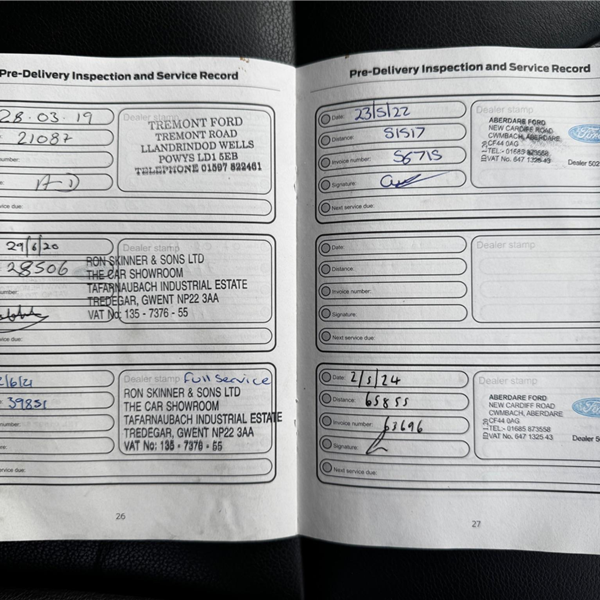 Pre-Delivery Inspection and Service Record
28.03.19
21087
umber:
AD
vice due:
Dealer stamp
TREMONT FORD
TREMONT ROAD
LLANDRINDOD WELLS
POWYS LD1 5EB
TELEPHONE 01597 822461
29/6/20
28506
umber:
vice due:
Dealer stamp
RON SKINNER & SONS LTD
THE CAR SHOWROOM
TAFARNAUBACH INDUSTRIAL ESTATE
TREDEGAR, GWENT NP22 3AA
VAT No: 135 - 7376 - 55
/6/21
39851
number:
ervice due:
Dealer stamp Full Service
RON SKINNER & SONS LTD
THE CAR SHOWROOM
TAFARNAUBACH INDUSTRIAL ESTATE
TREDEGAR, GWENT NP22 3AA
VAT No: 135 - 7376 - 55
26
Pre-Delivery Inspection and Service Record
Date: 23/5/22
Distance: 51517
Invoice number: 56715
Signature:
Next service due:
Dealer stamp
ABERDARE FORD
NEW CARDIFF ROAD
CWMBACH, ABERDARE
CF44 0AG
TEL:- 01685 873558
VAT No. 647 1325 43
Ford
Dealer 502
Date:
Distance:
Invoice number:
Signature:
Next service due:
Dealer stamp
Date: 2/5/24
Distance: 65855
Invoice number: 63696
Signature:
Next service due:
Dealer stamp
ABERDARE FORD
NEW CARDIFF ROAD
CWMBACH, ABERDARE
CF44 0AG
TEL:- 01685 873558
VAT No. 647 1325 43
Ford
Dealer 5
27